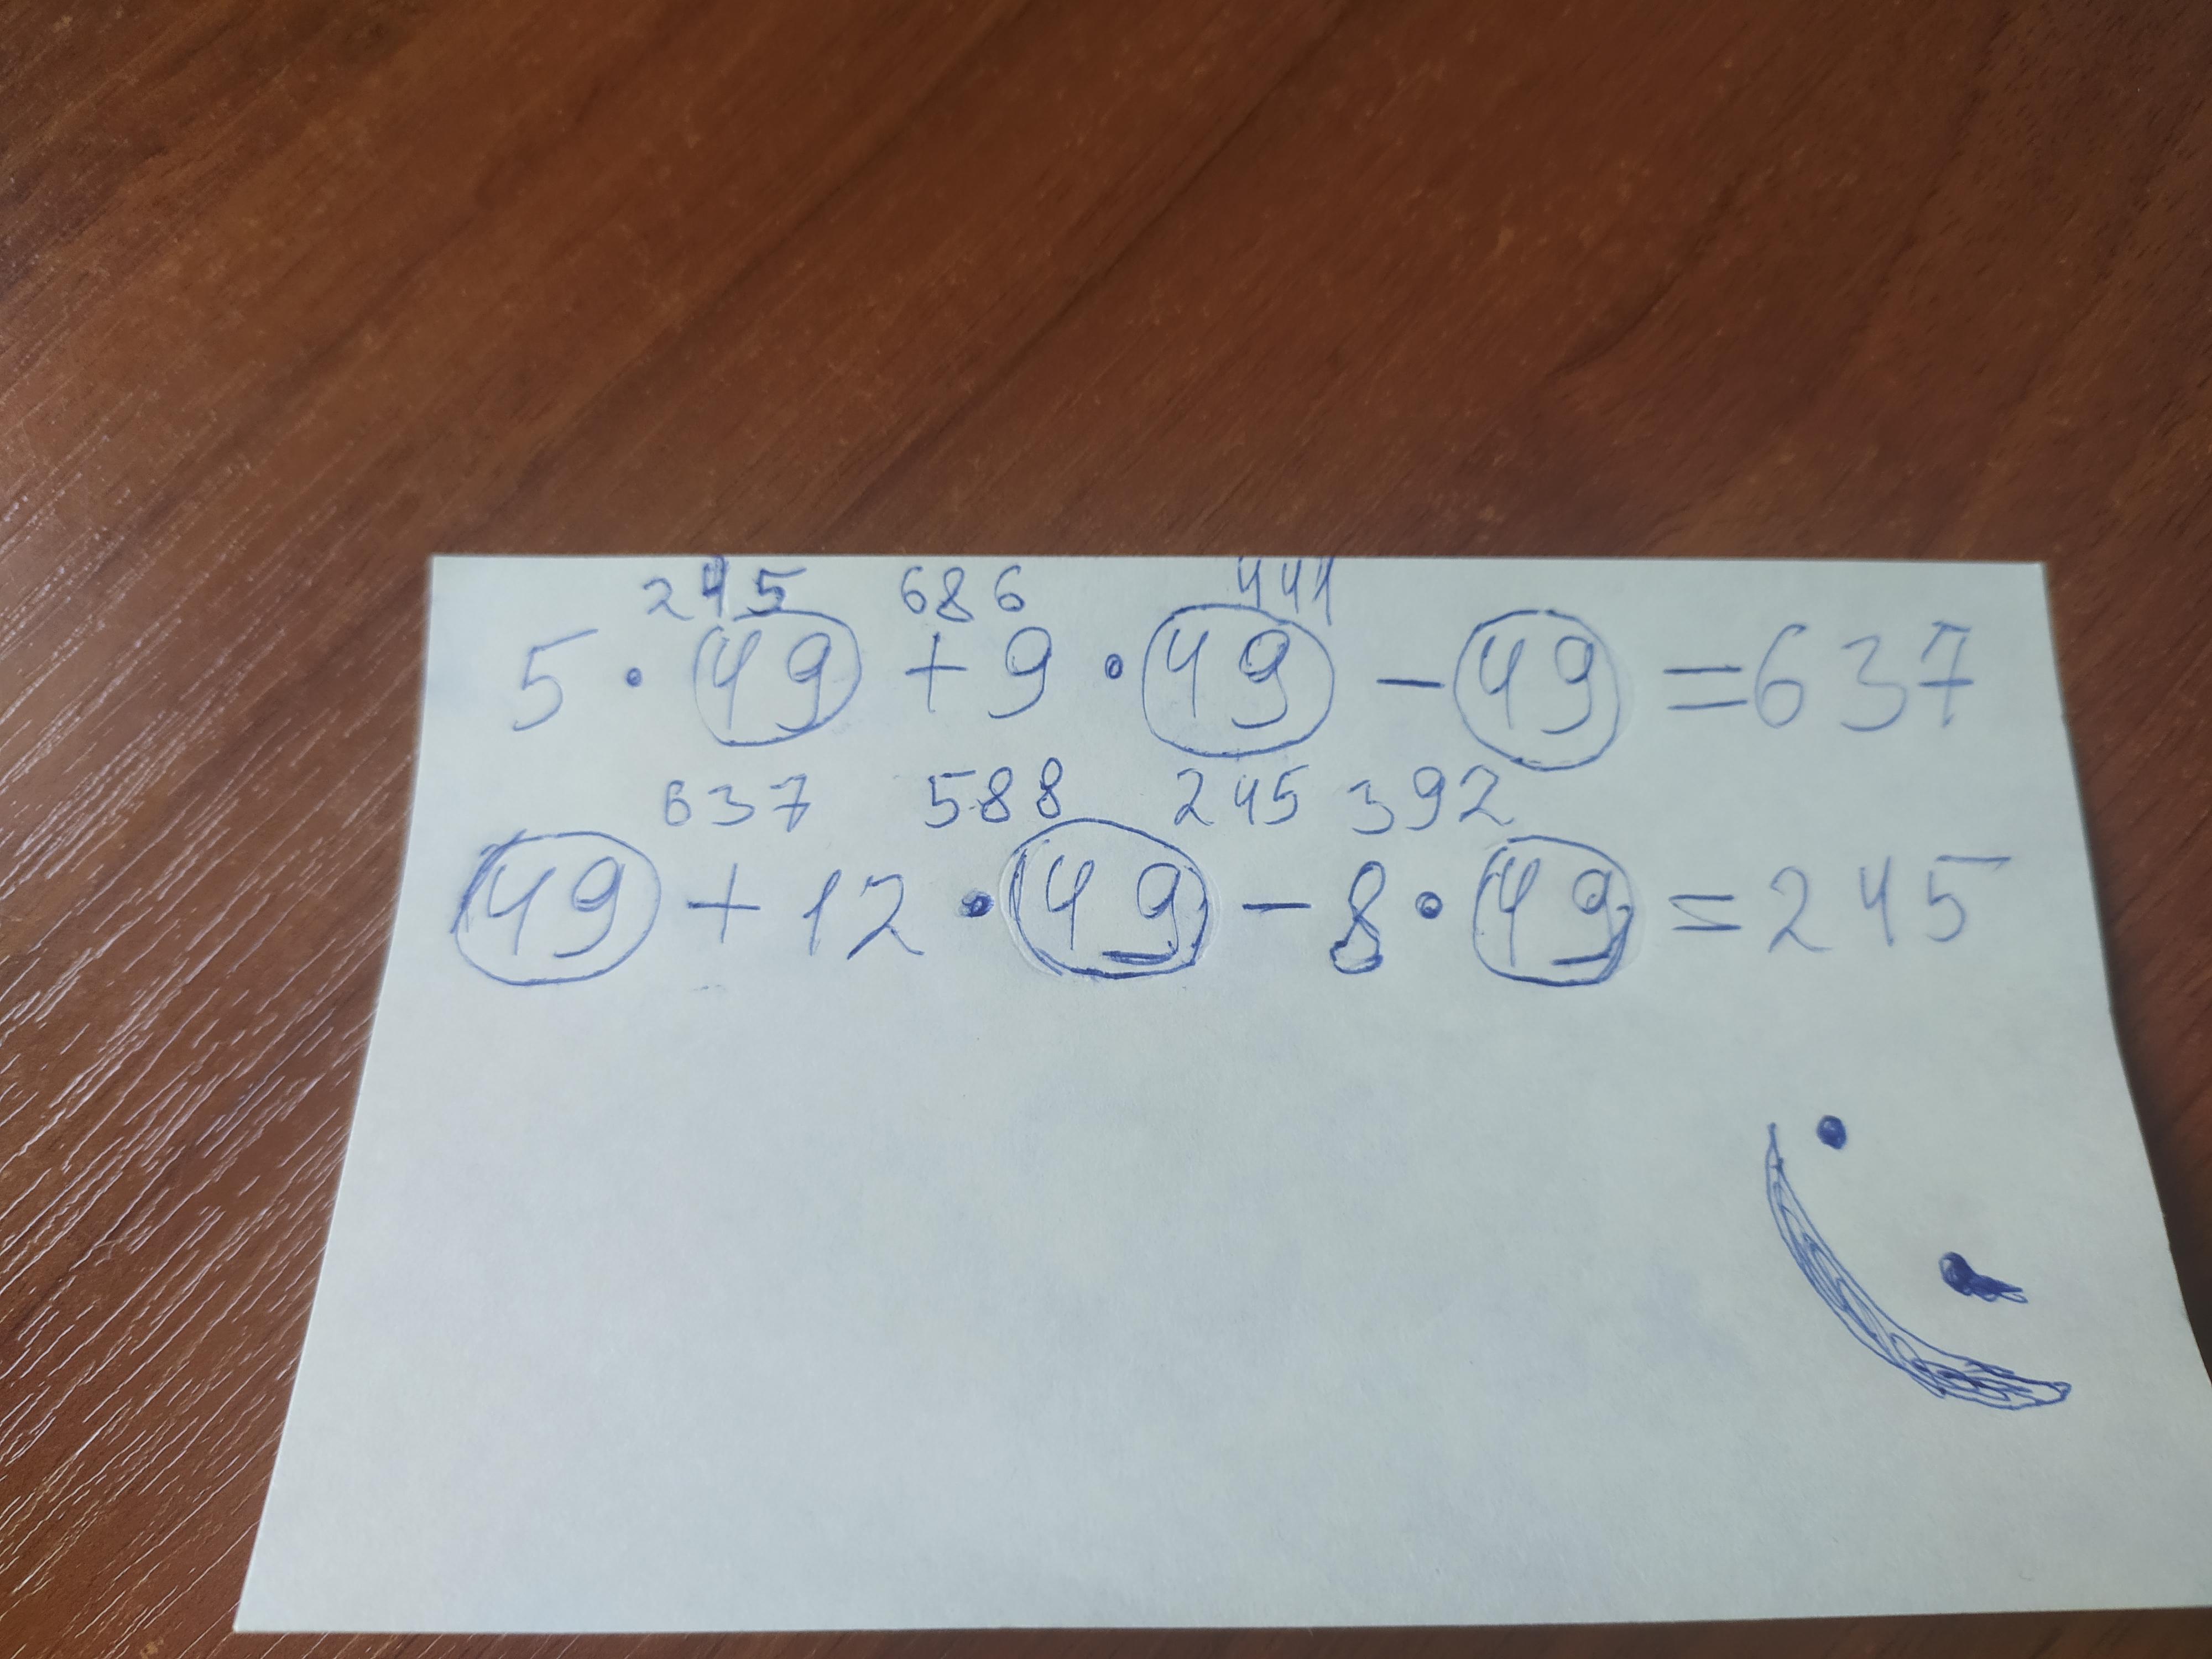 245 686 441
5 · 49 + 9 · 49 - 49 = 637
637 588 245 392
49 + 12 · 49 - 8 · 49 = 245